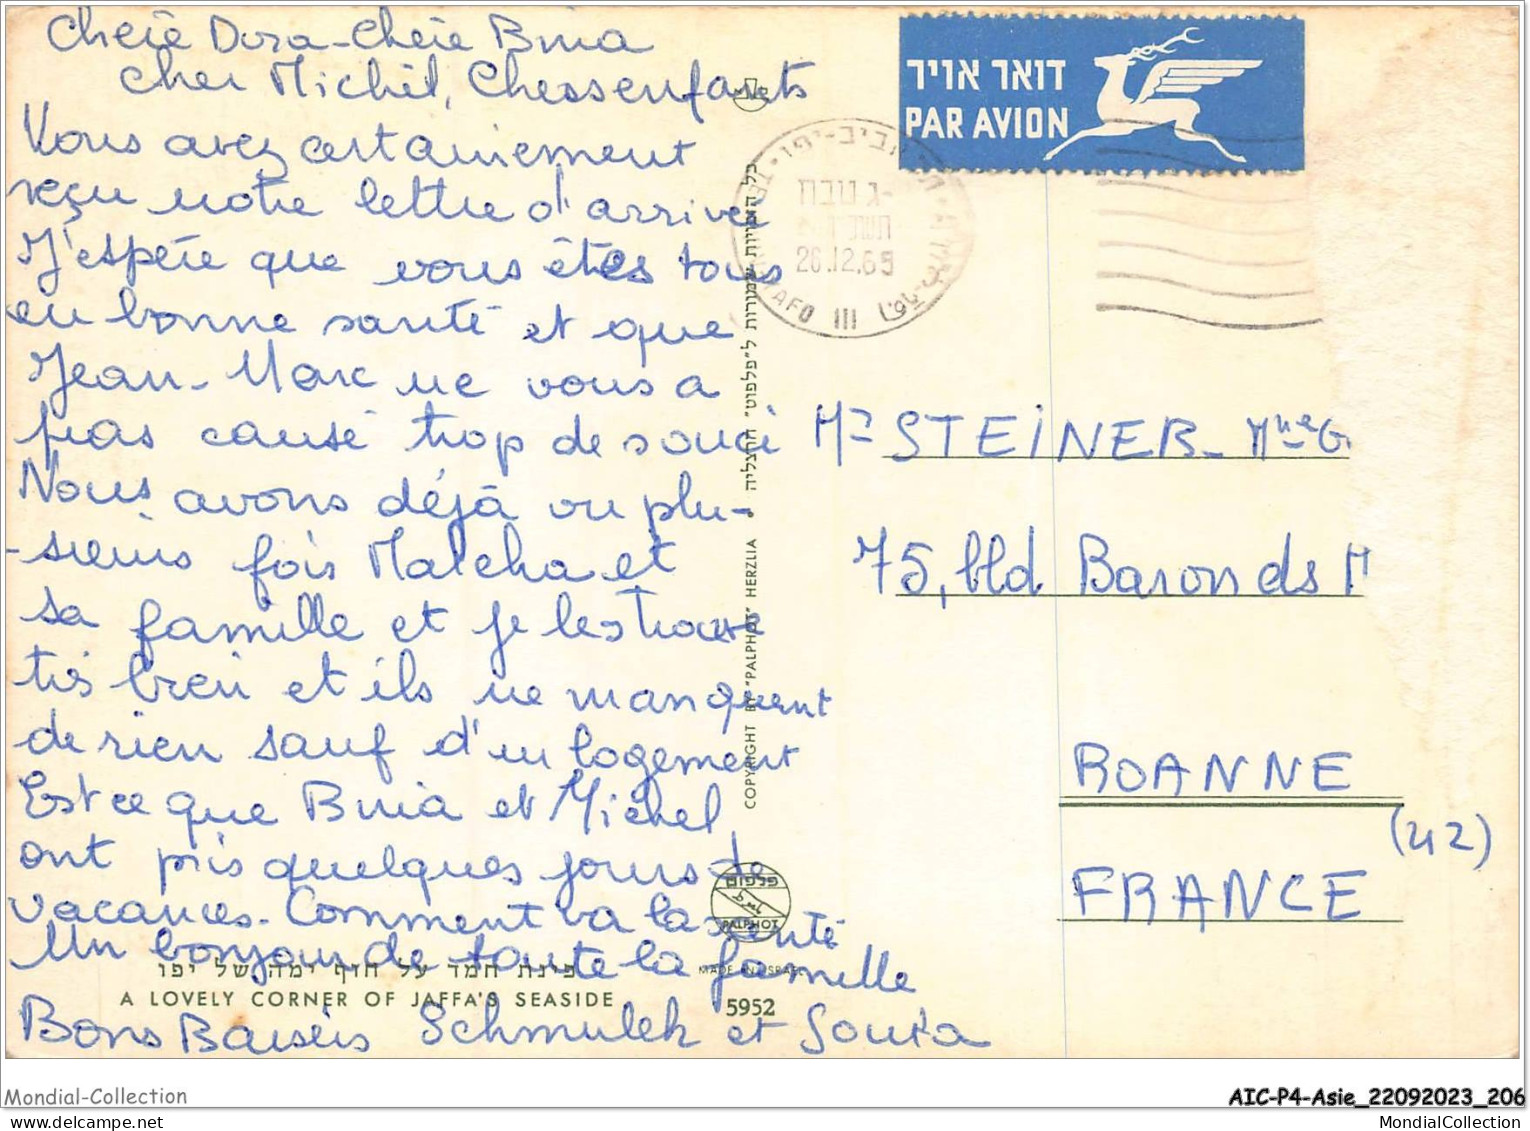 Chère Dora - Chère Bina
Cher Michel, Chers enfants
Vous avez certainement
reçu notre lettre d'arrivée
J'espère que vous êtes tous
en bonne santé et que
Jean-Marc ne vous a
pas causé trop de souci
Nous avons déjà vu plu-
-sieurs fois Malcha et
sa famille et je les trouve
très bien et ils ne manquent
de rien sauf d'un logement
Est ce que Bina et Michel
ont pris quelques jours de
vacances. Comment va la santé
Un bonjour de toute la famille
Bons Baisers Schmulek et Sonia
פינת חמד על חוף ימה של יפו
A LOVELY CORNER OF JAFFA'S SEASIDE
כל הזכויות שמורות ל"פלפוט" הרצליה • COPYRIGHT BY "PALPHOT" HERZLIA
פלפוט
PALPHOT
MADE IN ISRAEL
5952
דואר אויר
PAR AVION
26.12.65
YAFO III
Mr STEINER - Mme G
75, bld Baron ds M
ROANNE
(42)
FRANCE
Mondial-Collection
AIC-P4-Asie_22092023_206
delcampe.net
MondialCollection